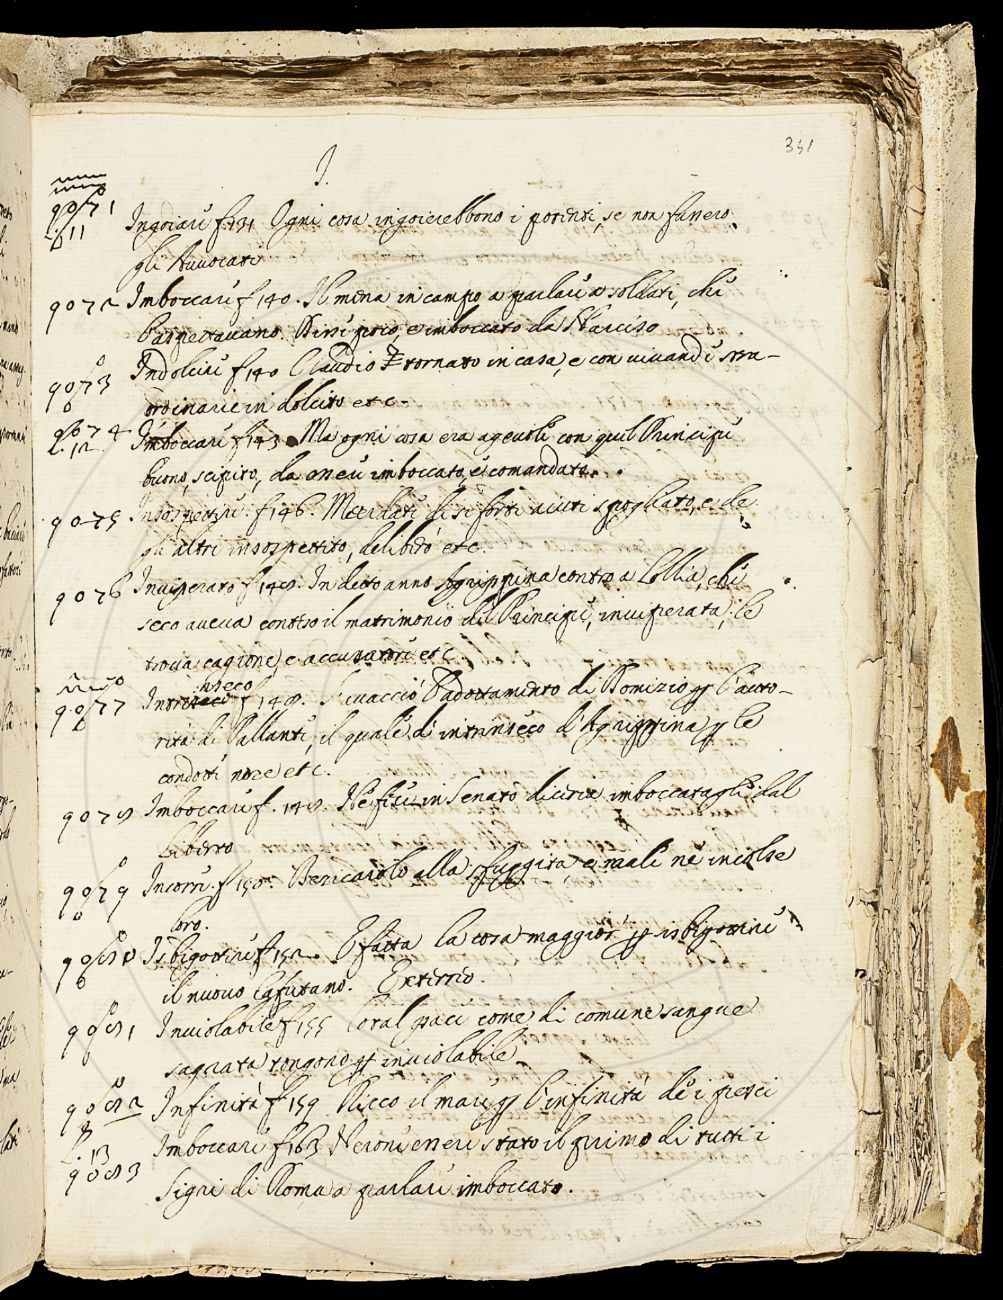 351
I.
9071 Ingoiare f. 131 Ogni cosa ingoierebbono i potenti, se non fussero
L. 11
gli Avvocati
9072 Imboccare f. 140. Il mena in campo a parlare a soldati, che
l'aspettavano. Disse poco, e imboccato da Narciso
9073 Indolcire f. 140 Claudio tornato in casa, e con vivande stra-
ordinarie in dolcito etc.
9074 Imboccare f. 143. Ma ogni cosa era agevole con quel Principe
L. 12
buono, scipito, da meu imboccato, e comandato.
9075 Insospettire. f. 146. Meridate di si forti aiuti spogliato, e de
gli altri insospettito, delibero etc.
9076 Inviperato f. 148. In detto anno Agrippina contro a Lollia, che
seco aveva conteso il matrimonio del Principe, inviperata, le
trova cagione, e accusatori etc.
nseco
9077 Intrinseco f. 149. Si vacciò l'adottamento di Domizio p l'auto-
rità di Pallante, il quale di intrinseco d'Agrippina p le
condotte nozze etc.
9078 Imboccare f. 148. Ne fece in Senato diceria imboccatagli dal
Liberto
9079 Incorre. f. 150. alla sfuggita, e male ne incolse
loro.
9080 Isbigottire f. 152. E fatta la cosa maggiore p isbigottire
il nuovo
9081 Inviolabile f. 155 Cotal pace come di comune sangue
sagrata tengono p inviolabile
9082 Infinità f. 159 Ricco il mare p l'infinità de i pesci
L. 13
9083 Imboccare f. 163 Nerone essere stato il primo di tutti i
Signori di Roma a parlare imboccato.